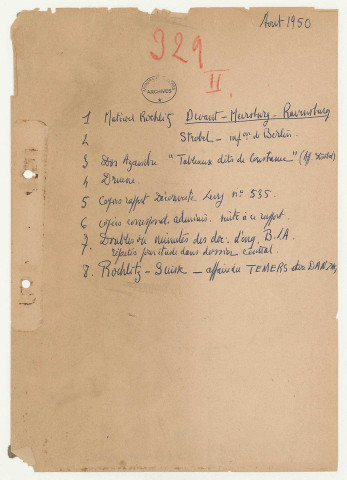 Août 1950
329
II
ARCHIVES
1 Matieres Rochlitz Devant - Meersburg - Ravensburg
2 Strobel - inf^on de Berlin.
3 Doss "Tableaux dits de Constance" (Aff.
4 Drucne.
5 Copies rapport Découverte n° 535.
6 copies correspond. adminis. suite à ce rapport.
7. Doubles ou minutes des doc. d'enq. B.I.A
refaites pour étude dans dossier central.
8. Rochlitz - Suisse - affaire du TENIERS